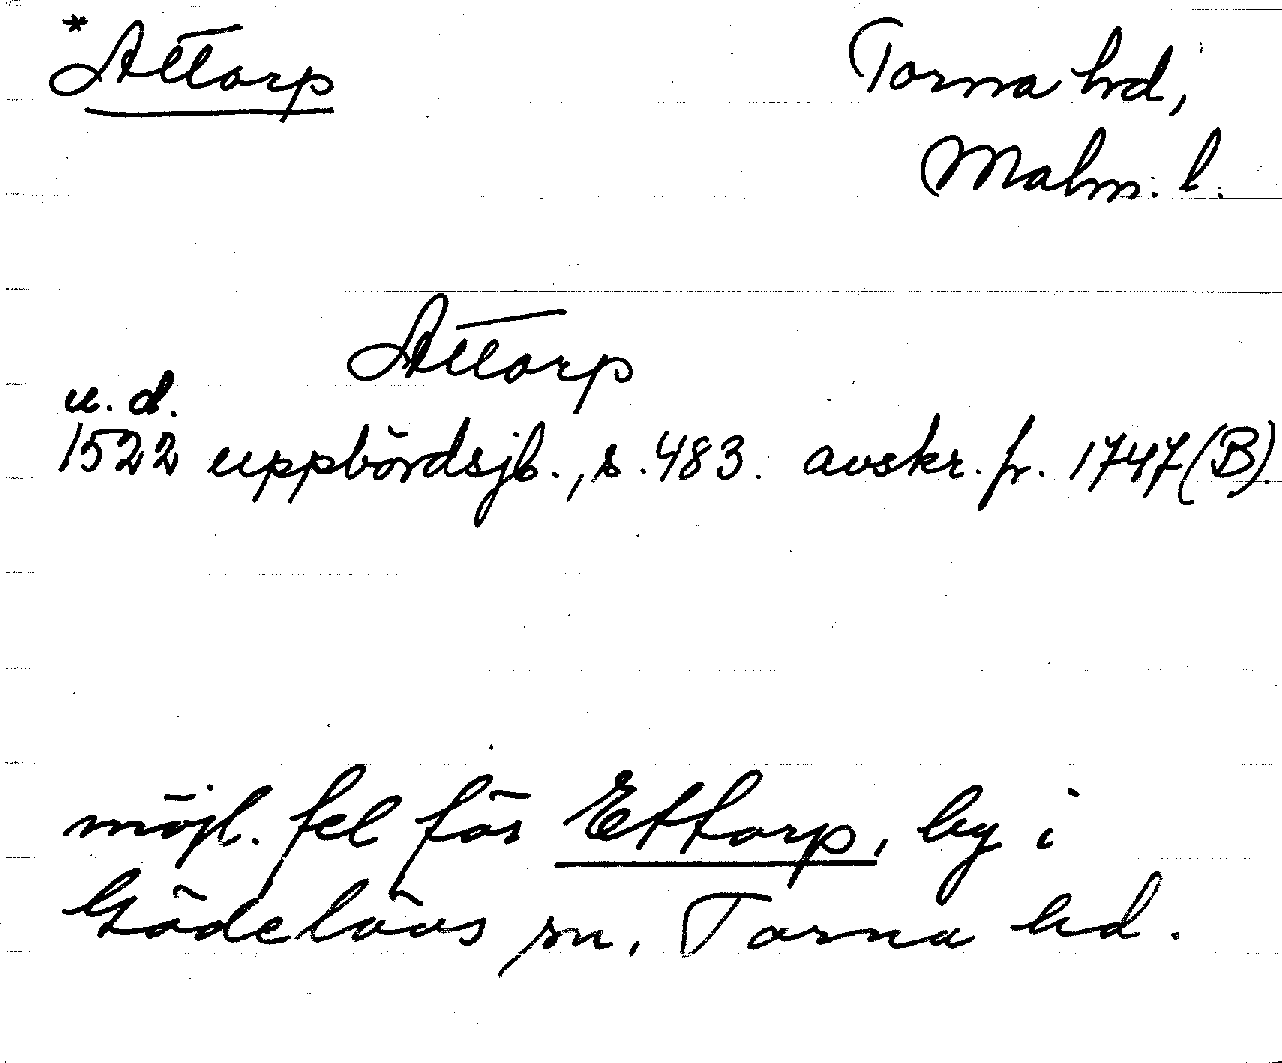 *Attorp
Torna hd,
Malm. l.
Attorp
u. d.
1522 uppbördsjb., s. 483. avskr. fr. 1747 (B)
möjl. fel för Ettorp, by i
Gödelövs sn, Torna hd.